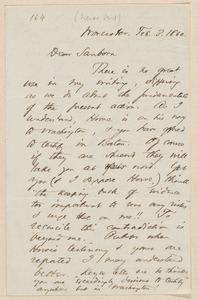 164
Worcester, Feb. 3. 1860.
Dear Sanborn
There is no great
use in my writing, differing
as we do about the fundamentals
of the present action. As I
understand, Howe is on his way
to Washington, & you have offered
to testify in Boston. Of course
if they are shrewd they will
take you at their word. Yet
you (& I suppose Howe) think
the keeping back of evidence
too important to run any risks
& urge this on me!! To
reconcile this contradiction is
beyond me. Perhaps when
Howe's testimony & yours are
repeated I may understand
better.
you exceedingly unwise to testify
anywhere but in Washington!